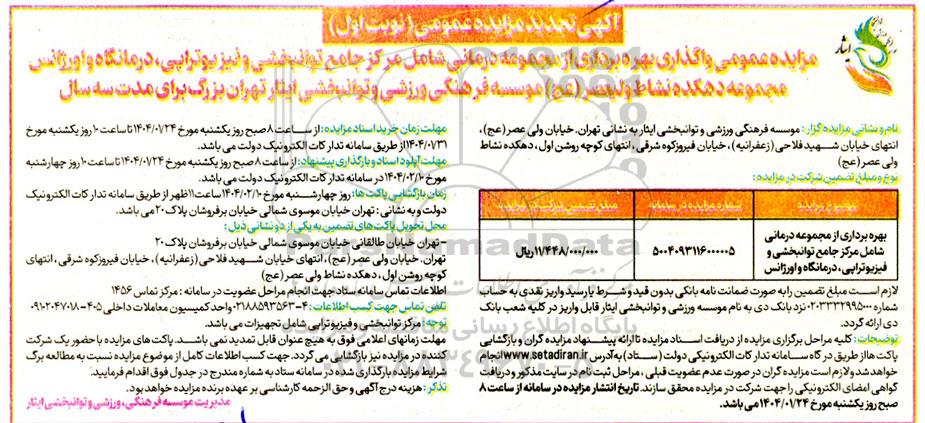 آگهی تجدید مزایده عمومی (نوبت اول)
مزایده عمومی واگذاری بهره برداری از مجموعه درمانی شامل مرکز جامع توانبخشی و فیزیوتراپی، درمانگاه و اورژانس
مجموعه دهکده نشاط ولیعصر (عج) موسسه فرهنگی ورزشی و توانبخشی ایثار تهران بزرگ برای مدت سه سال
ایثار
نام و نشانی مزایده گزار: موسسه فرهنگی ورزشی و توانبخشی ایثار به نشانی تهران. خیابان ولی عصر (عج)،
انتهای خیابان شهید فلاحی (زعفرانیه)، خیابان فیروزکوه شرقی، انتهای کوچه روشن اول، دهکده نشاط
ولی عصر (عج)
نوع و مبلغ تضمین شرکت در مزایده:
موضوع مزایده شماره مزایده در سامانه مبلغ تضمین شرکت در مزایده
بهره برداری از مجموعه درمانی
شامل مرکز جامع توانبخشی و
فیزیوتراپی، درمانگاه و اورژانس
۵۰۰۴۰۹۳۱۱۶۰۰۰۰۰۵
۱۱/۴۴۸/۰۰۰/۰۰۰ ریال
لازم است مبلغ تضمین را به صورت ضمانت نامه بانکی بدون قید و شرط یا رسید واریز نقدی به حساب
شماره ۰۲۰۳۳۳۲۹۹۵۰۰۰ نزد بانک دی به نام موسسه ورزشی و توانبخشی ایثار قابل واریز در کلیه شعب بانک
دی ارائه گردد.
توضیحات: کلیه مراحل برگزاری مزایده از دریافت اسناد مزایده تا ارائه پیشنهاد مزایده گران و بازگشایی
پاکت ها از طریق درگاه سامانه تدارکات الکترونیکی دولت (ستاد) به آدرس www.setadiran.ir انجام
خواهد شد و لازم است مزایده گران در صورت عدم عضویت قبلی، مراحل ثبت نام در سایت مذکور و دریافت
گواهی امضای الکترونیکی را جهت شرکت در مزایده محقق سازند. تاریخ انتشار مزایده در سامانه از ساعت ۸
صبح روز یکشنبه مورخ ۱۴۰۴/۰۱/۲۴ می باشد.
مهلت زمان خرید اسناد مزایده: از ساعت ۸ صبح روز یکشنبه مورخ ۱۴۰۴/۰۱/۲۴ تا ساعت ۱۰ روز یکشنبه مورخ
۱۴۰۴/۰۱/۳۱ از طریق سامانه تدارکات الکترونیک دولت می باشد.
مهلت آپلود اسناد و بارگذاری پیشنهاد: از ساعت ۸ صبح روز یکشنبه مورخ ۱۴۰۴/۰۱/۲۴ تا ساعت ۱۰ روز چهارشنبه
مورخ ۱۴۰۴/۰۲/۱۰ در سامانه تدارکات الکترونیک دولت می باشد.
زمان بازگشایی پاکت ها: روز چهارشنبه مورخ ۱۴۰۴/۰۲/۱۰ ساعت ۱۱ ظهر از طریق سامانه تدارکات الکترونیک
دولت و به نشانی: تهران خیابان موسوی شمالی خیابان برفروشان پلاک ۲۰ می باشد.
محل تحویل پاکت های تضمین به یکی از دو نشانی ذیل:
- تهران خیابان طالقانی خیابان موسوی شمالی خیابان برفروشان پلاک ۲۰
تهران. خیابان ولی عصر (عج)، انتهای خیابان شهید فلاحی (زعفرانیه)، خیابان فیروزکوه شرقی، انتهای
کوچه روشن اول، دهکده نشاط ولی عصر (عج)
اطلاعات تماس سامانه ستاد جهت انجام مراحل عضویت در سامانه: مرکز تماس ۱۴۵۶
تلفن تماس جهت کسب اطلاعات: ۰۲۱۸۸۵۹۳۵۶۳-۴ واحد کمیسیون معاملات داخلی ۴۰۵-۰۹۱۰۲۰۴۷۰۱۸
توجه: مرکز توانبخشی و فیزیوتراپی شامل تجهیزات می باشد.
مهلت زمانهای اعلامی فوق به هیچ عنوان قابل تمدید نمی باشند. پاکت های مزایده با حضور یک شرکت
کننده در مزایده نیز بازگشایی می گردد. جهت کسب اطلاعات کامل از موضوع مزایده نسبت به مطالعه برگ
شرایط مزایده بارگذاری شده در سامانه ستاد به شماره مندرج در جدول فوق اقدام فرمایید.
تذکر: هزینه درج آگهی و حق الزحمه کارشناسی بر عهده برنده مزایده خواهد بود.
مدیریت موسسه فرهنگی، ورزشی و توانبخشی ایثار